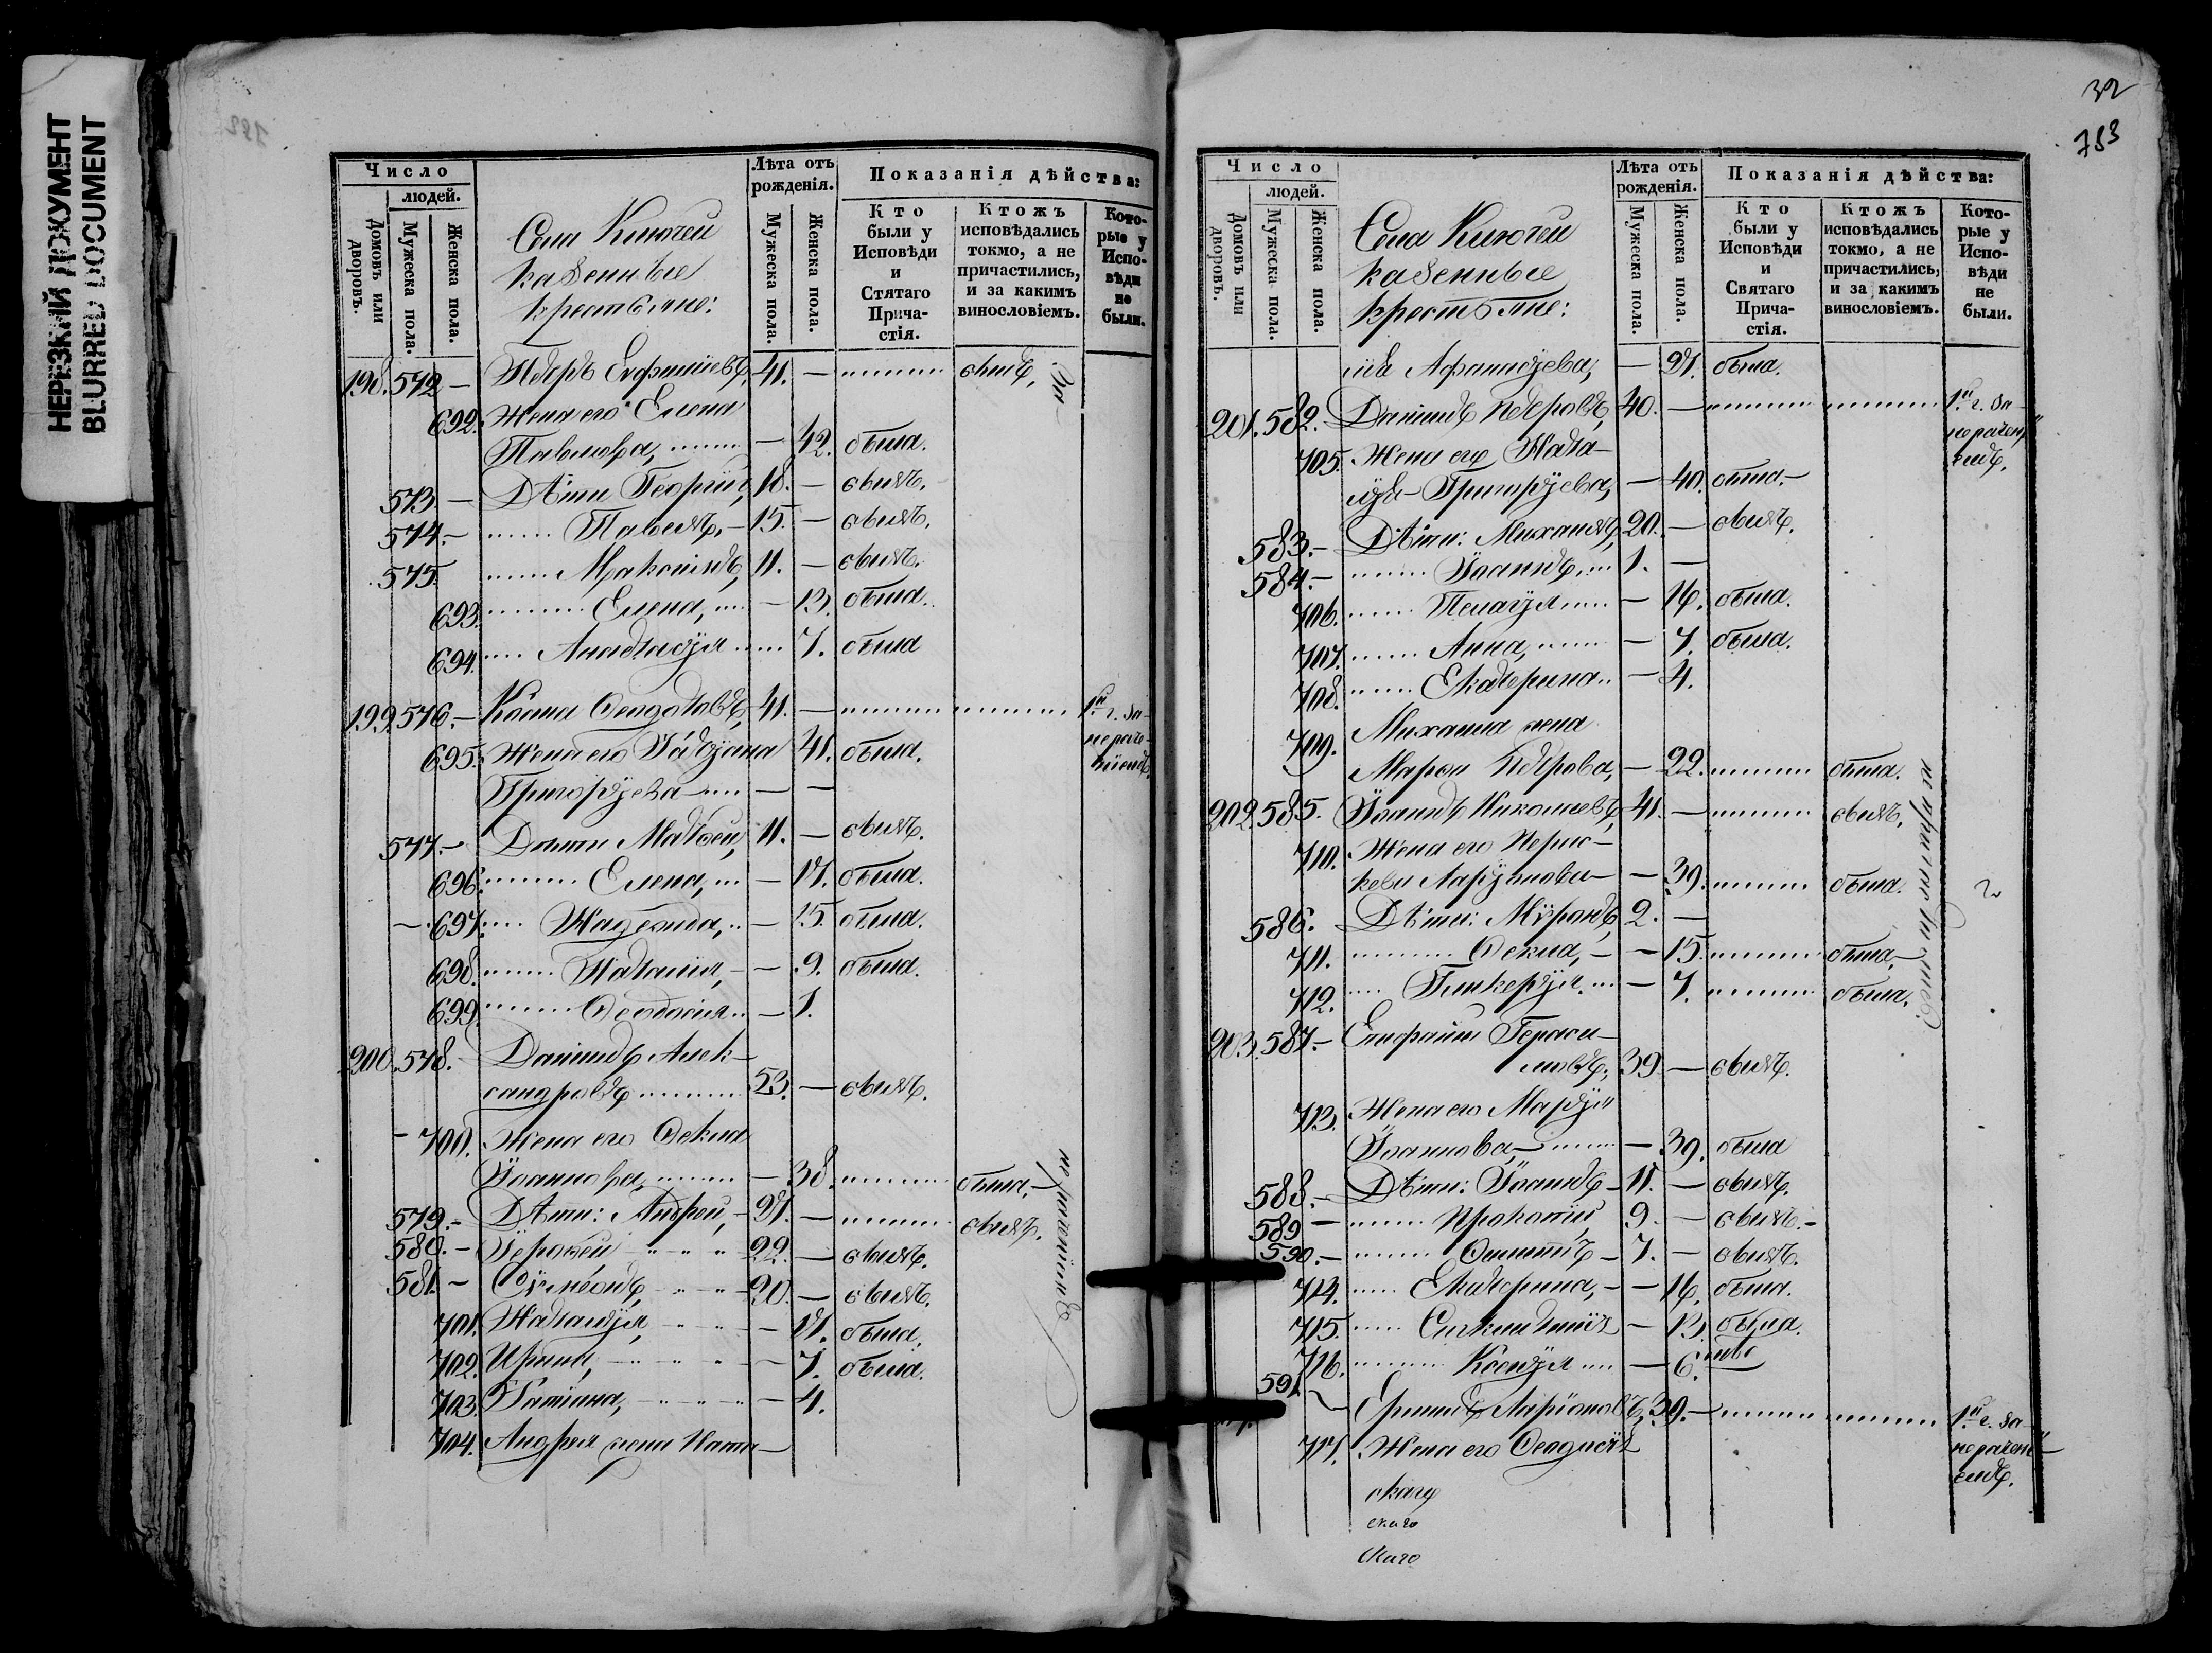 НЕРЕЗКИЙ ДОКУМЕНТ
BLURRED DOCUMENT
Число
людей.
Домовъ или дворовъ.
Мужеска пола.
Женска пола.
Села Ключей
казенные
крестьяне:
Лѣта отъ рожденія.
Мужеска пола.
Женска пола.
Показанія дѣйства:
Кто были у Исповѣди и Стятаго Прича-стія.
Ктожъ исповѣдались токмо, а не причастились, и за какимъ винословіемъ.
Кото-рые у Испо-вѣди не были.
198. 572 — Петръ 41. —
692. Жена его Елена
Павлова, — 42. была.
573. — Дѣти Георгій, 18. — былъ.
574. — Павелъ, — 15. — былъ.
575. 11. — былъ.
693. Елена, — 13. была.
694. Анастасія 7. была
199. 576. — Косма Ѳеодотовъ, 41. — 1й г. за
нераче-
ніемъ.
695. Жена его Татіана 41. была.
Григорьева — —
577. — Дѣти Матѳей, 11. — былъ.
696. Елена, — 17. была.
— 697. Надежда, — 15. была.
698. Наталія, — 9. была.
699. Ѳеодосія — 1.
200. 578. — Даніилъ Алек-
сандровъ 53. — былъ.
— 700. Жена его Ѳекла
Іоаннова, — 38. была, —
579. — Дѣти: Андрей, — 27. — былъ.
580. — Іероѳей 22. — былъ.
581. — Сѵмеонъ, 20. — былъ.
701. — 17. была.
702. Ирина, — 7. была.
703. Татіана, — 4.
704. Андрея жена Ната—
32
783
Число
людей.
Домовъ или дворовъ.
Мужеска пола.
Женска пола.
Села Ключей
казенные
крестьяне:
Лѣта отъ рожденія.
Мужеска пола.
Женска пола.
Показанія дѣйства:
Кто были у Исповѣди и Святаго Прича-стія.
Ктожъ исповѣдались токмо, а не причастились, и за какимъ винословіемъ.
Кото-рые у Испо-вѣди не были.
лія Афанасьева, — 27. была.
201. 582. Даніилъ Петровъ, 40. — 1й г. за
нерачені-
емъ.
705. Жена его Ната—
лія Григорьева, — 40. была —
583. — Дѣти: Михаилъ, 20. — былъ.
584. — Іоаннъ, 1. —
706. Пелагія — 16. была.
707. Анна, — 7. была.
708. Екатерина — 4.
709. Михаила жена
Марѳа Петрова, — 22. была.
202. 585. Іоаннъ Николаевъ, 41. — былъ.
710. Жена его
Ларіонова — — 39. была.
586. Дѣти: Мѵронъ, 2. —
711. Ѳекла, — — 15. была, —
712. Гликерія — 7. была.
не причастились
203. 587. — Епифаній Гераси—
мовъ, 39 — былъ.
713. Жена его Марія
Іоаннова, — — 39. была
588. — Дѣти: Іоаннъ — 11. — былъ.
589 — Прокопій, 9. — былъ. —
590. — Филиппъ — 7. — былъ.
714. Екатерина, — — 16. была.
715. — 13. была.
716. Ксенія — 6.
591. Ларіоновъ, 39. — 1й г. за
нерачені-
емъ.
717. Жена его
скаго
скаго